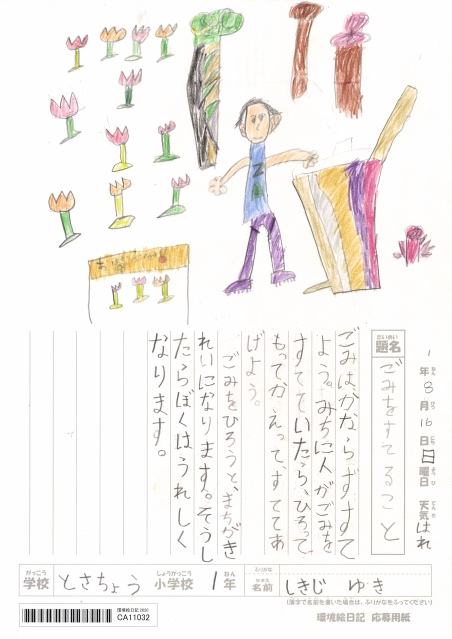 1年8月16日日曜日 天気 はれ
題名 ごみをすてること
ごみは、かならずすて
よう。みちに人がごみを
すてていたら、ひろって
もってかえって、すててあ
げよう。
ごみをひろうと、まちがき
れいになります。そうし
たらぼくはうれしく
なります。
がっこう しょうがっこう ねん ふりがな
学校 とさちょう 小学校 1年 名前 しきじ ゆき
(漢字で名前を書いた場合は、ふりがなをふってください)
環境絵日記2020
CA11032
環境絵日記 応募用紙